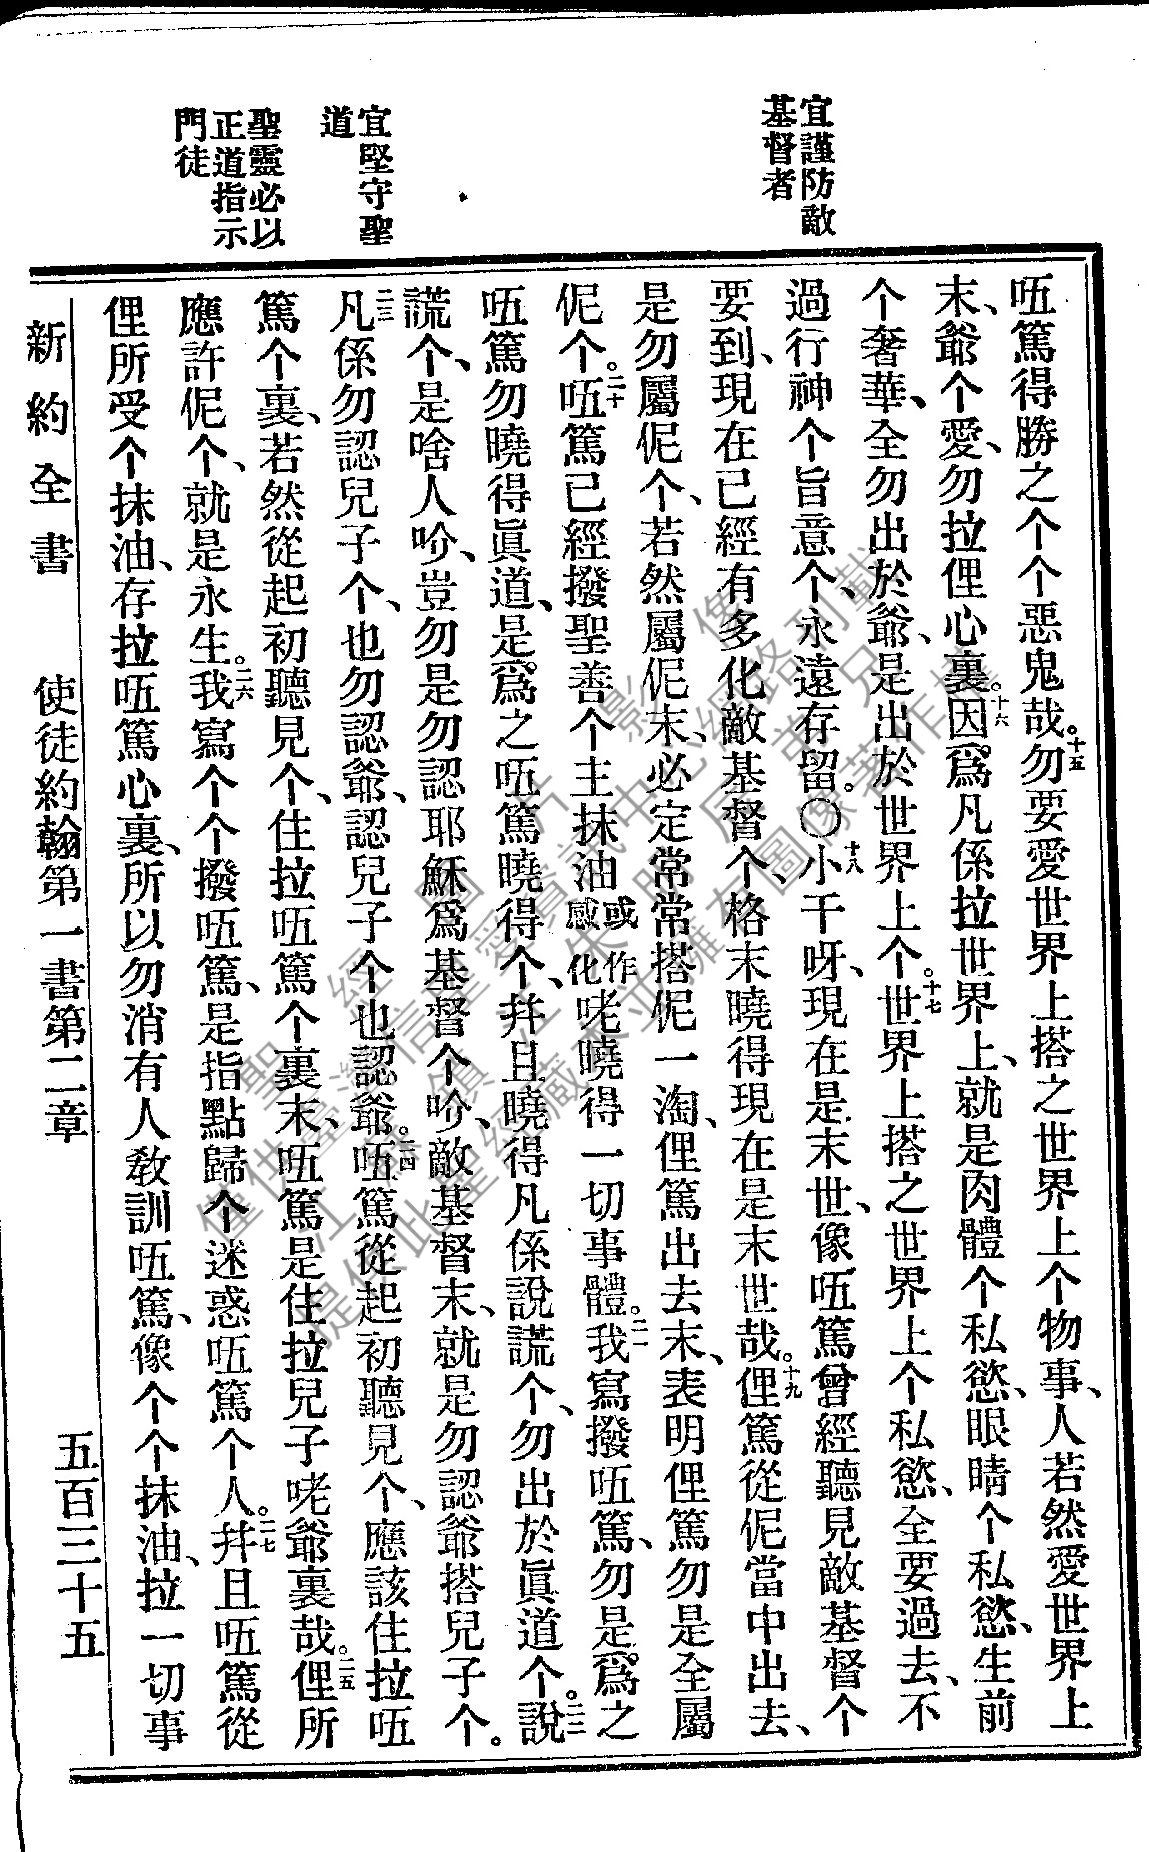 宜謹防敵
基督者
宜堅守聖
道
聖靈必以
正道指示
門徒
㕶篤得勝之个个惡鬼哉。十五勿要愛世界上搭之世界上个物事、人若然愛世界上
末、爺个愛、勿拉俚心裏。十六因爲凡係拉世界上、就是肉體个私慾、眼睛个私慾、生前
个奢華、全勿出於爺、是出於世界上个。十七世界上搭之世界上个私慾、全要過去、不
過行神个旨意个、永遠存留。〇十八小干呀、現在是末世、像㕶篤曾經聽見敵基督个
要到、現在已經有多化敵基督个、格末曉得現在是末世哉。十九俚篤從伲當中出去、
是勿屬伲个、若然屬伲末、必定常常搭伲一淘、俚篤出去末、表明俚篤勿是全屬
伲个。二十㕶篤已經撥聖善个主抹油或作感化咾曉得一切事體。二一我寫撥㕶篤、勿是爲之
㕶篤勿曉得眞道、是爲之㕶篤曉得个、幷且曉得凡係說謊个、勿出於眞道个。二二說
謊个、是啥人吤、豈勿是勿認耶穌爲基督个吤、敵基督末、就是勿認爺搭兒子个。
二三凡係勿認兒子个、也勿認爺、認兒子个也認爺。二四㕶篤從起初聽見个、應該住拉㕶
篤个裏、若然從起初聽見个、住拉㕶篤个裏末、㕶篤是住拉兒子咾爺裏哉。二五俚所
應許伲个、就是永生。二六我寫个个撥㕶篤、是指點歸个迷惑㕶篤个人。二七幷且㕶篤從
俚所受个抹油、存拉㕶篤心裏、所以勿消有人敎訓㕶篤、像个个抹油、拉一切事
新約全書　使徒約翰第一書第二章　五百三十五
聖經圖片影像
僅供臺灣信望愛資訊中心網路刊載
提供此聖經藏本並擁有圖像著作權